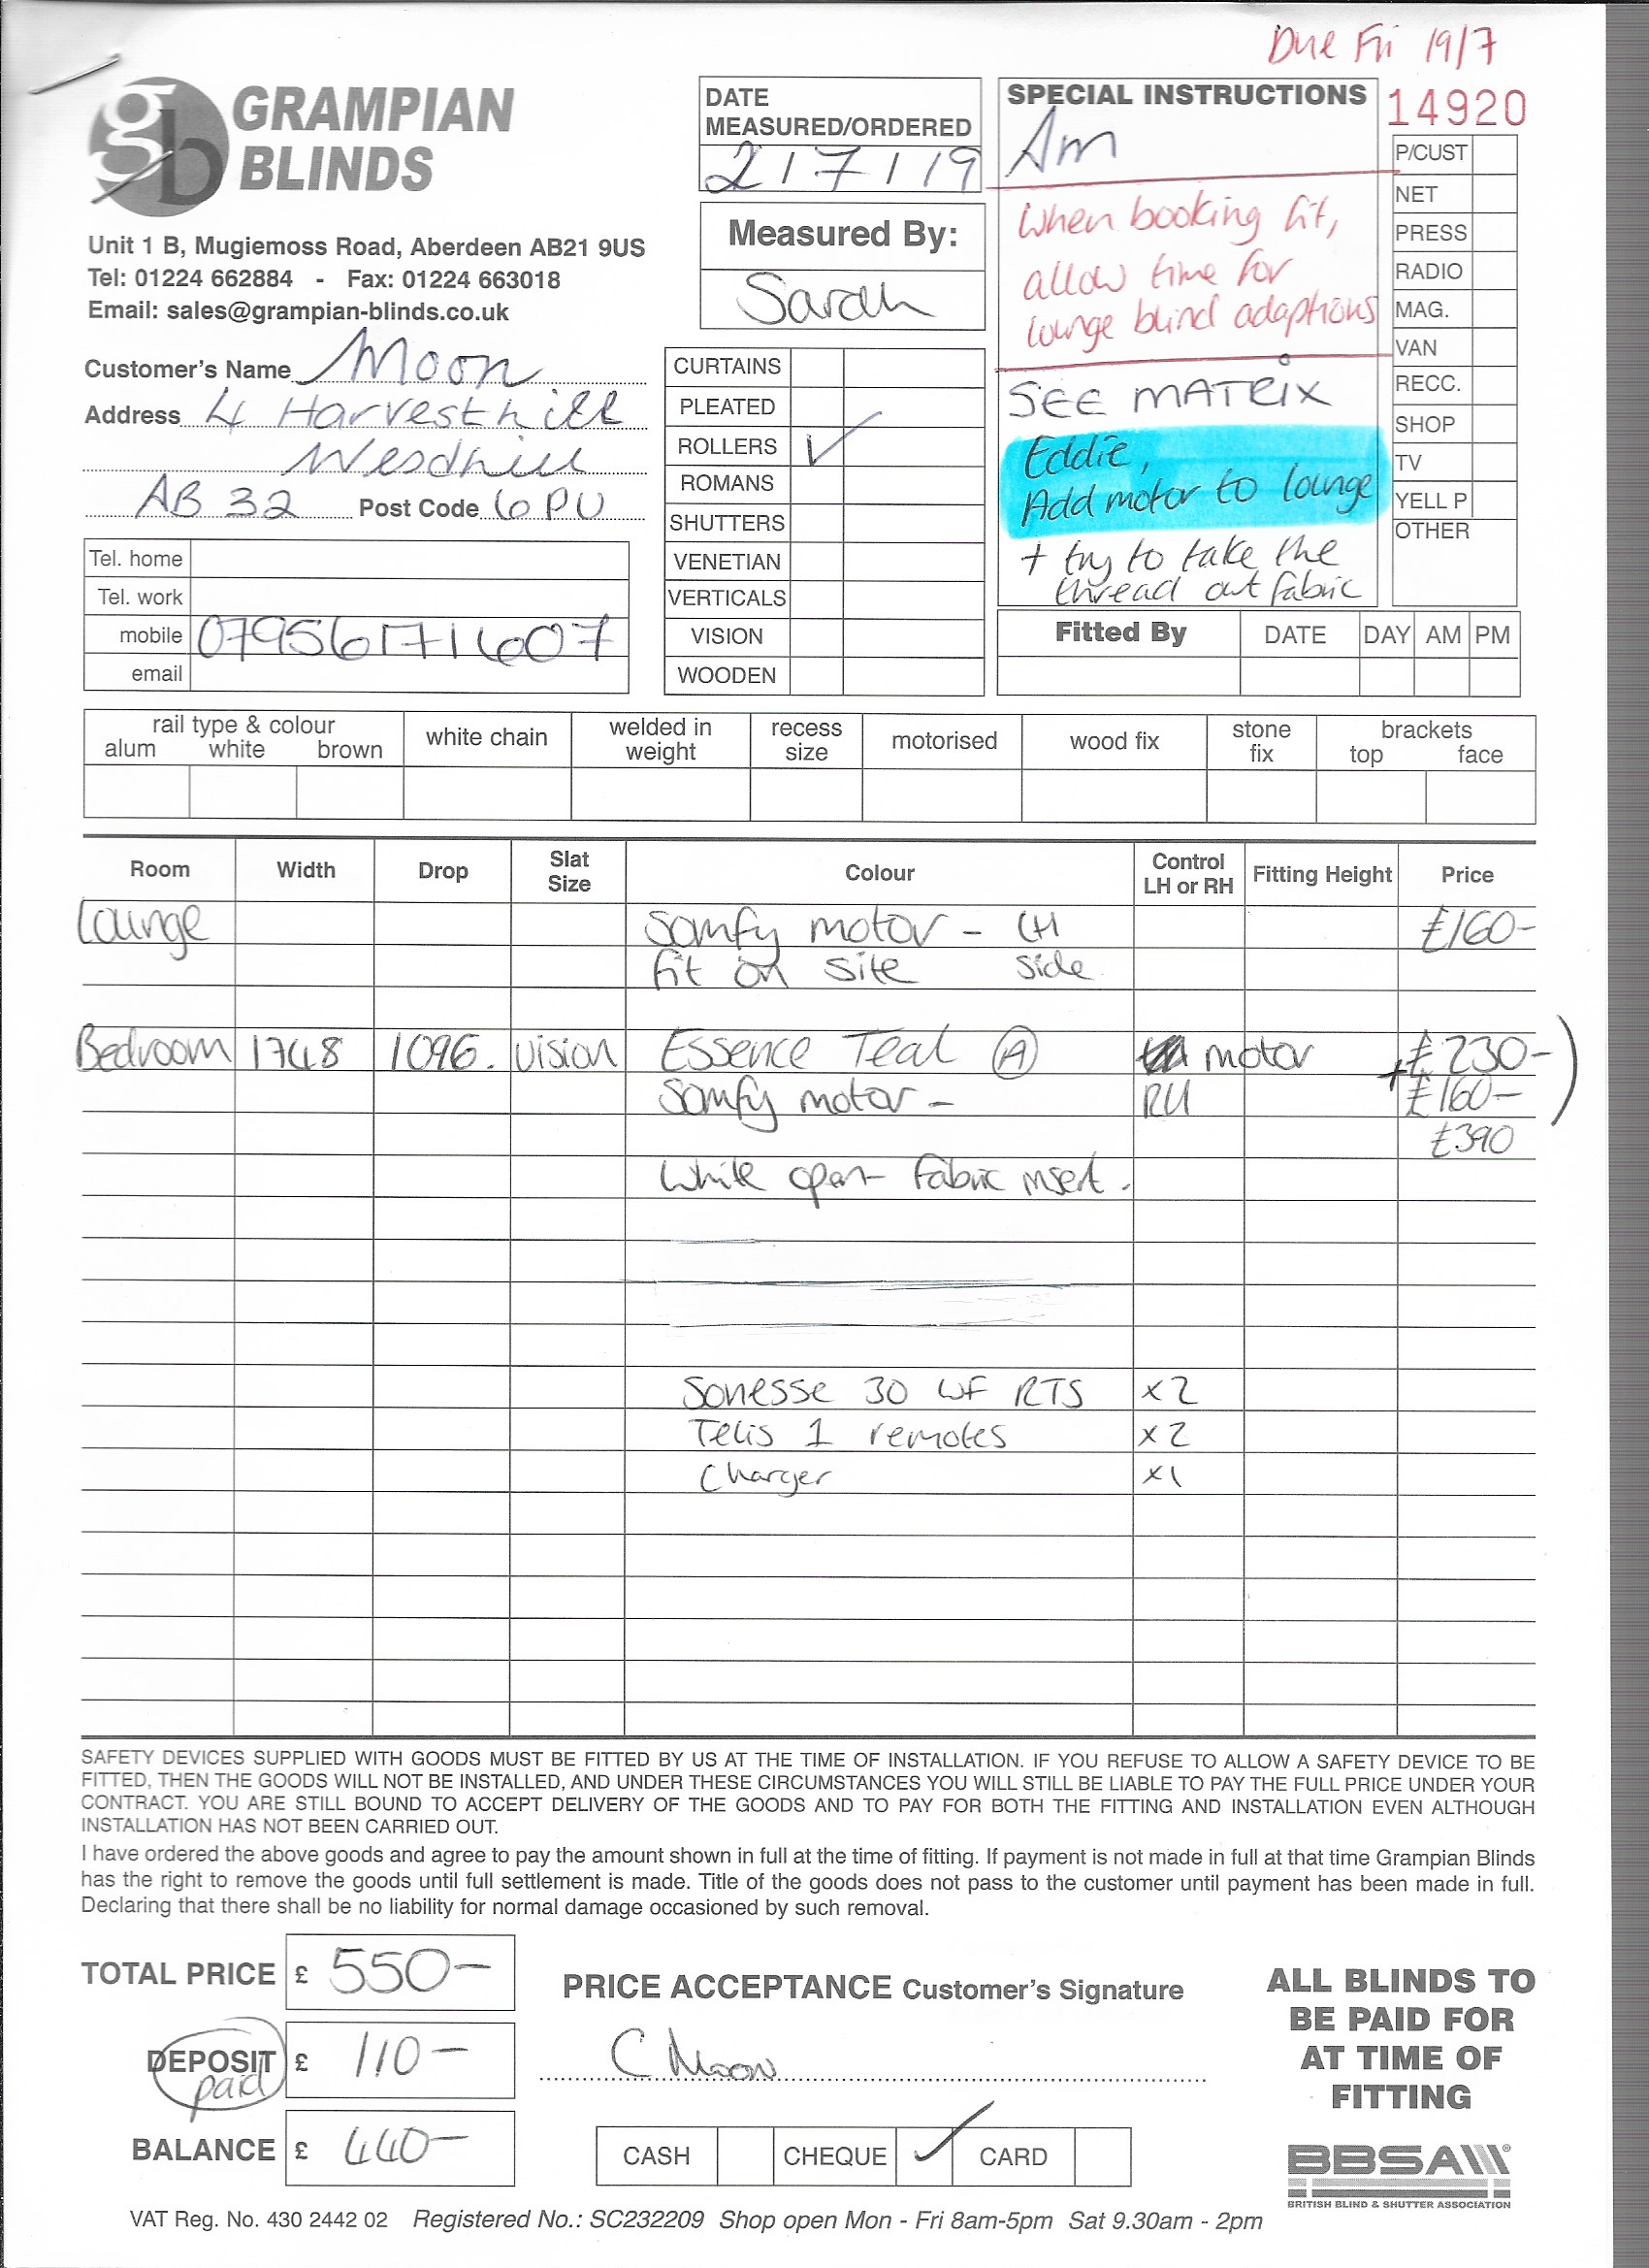 Due Fri 19/7
GRAMPIAN
BLINDS
Unit 1 B, Mugiemoss Road, Aberdeen AB21 9US
Tel: 01224 662884 - Fax: 01224 663018
Email: sales@grampian-blinds.co.uk
Customer's Name Moon
Address 4 Harvesthill
Westhill
AB 32 Post Code 6PU
Tel. home
Tel. work
mobile 07956171607
email
DATE
MEASURED/ORDERED
2/7/19
Measured By:
Sarah
CURTAINS
PLEATED
ROLLERS ✓
ROMANS
SHUTTERS
VENETIAN
VERTICALS
VISION
WOODEN
SPECIAL INSTRUCTIONS
Am
When booking fit,
allow time for
lounge blind adaptions
SEE MATRIX
Eddie,
Add motor to lounge
+ try to take the
thread out fabric
14920
P/CUST
NET
PRESS
RADIO
MAG.
VAN
RECC.
SHOP
TV
YELL P
OTHER
Fitted By DATE DAY AM PM
rail type & colour
alum white brown
white chain
welded in
weight
recess
size
motorised
wood fix
stone
fix
brackets
top face
Room Width Drop Slat Size Colour Control LH or RH Fitting Height Price
Lounge Somfy motor - LH £160-
fit on site side
Bedroom 1748 1096. Vision Essence Teal (A) motor £230-
Somfy motor - RH +£160-
£390
White open fabric insert.
Sonesse 30 WF RTS x2
Telis 1 remotes x2
Charger x1
SAFETY DEVICES SUPPLIED WITH GOODS MUST BE FITTED BY US AT THE TIME OF INSTALLATION. IF YOU REFUSE TO ALLOW A SAFETY DEVICE TO BE
FITTED, THEN THE GOODS WILL NOT BE INSTALLED, AND UNDER THESE CIRCUMSTANCES YOU WILL STILL BE LIABLE TO PAY THE FULL PRICE UNDER YOUR
CONTRACT. YOU ARE STILL BOUND TO ACCEPT DELIVERY OF THE GOODS AND TO PAY FOR BOTH THE FITTING AND INSTALLATION EVEN ALTHOUGH
INSTALLATION HAS NOT BEEN CARRIED OUT.
I have ordered the above goods and agree to pay the amount shown in full at the time of fitting. If payment is not made in full at that time Grampian Blinds
has the right to remove the goods until full settlement is made. Title of the goods does not pass to the customer until payment has been made in full.
Declaring that there shall be no liability for normal damage occasioned by such removal.
TOTAL PRICE £ 550-
DEPOSIT £ 110-
paid
BALANCE £ 440-
PRICE ACCEPTANCE Customer's Signature
C Moon
CASH CHEQUE ✓ CARD
ALL BLINDS TO
BE PAID FOR
AT TIME OF
FITTING
BBSA
BRITISH BLIND & SHUTTER ASSOCIATION
VAT Reg. No. 430 2442 02 Registered No.: SC232209 Shop open Mon - Fri 8am-5pm Sat 9.30am - 2pm